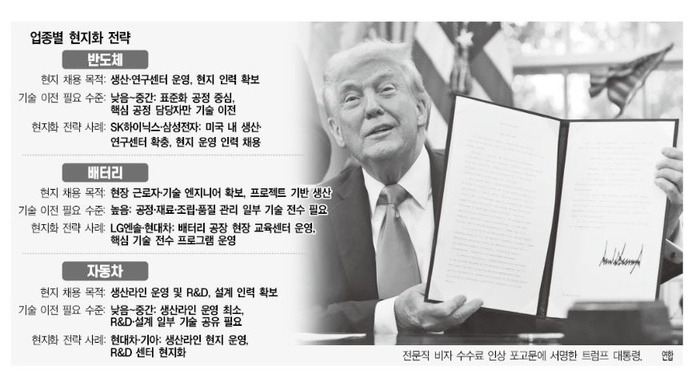 업종별 현지화 전략
반도체
현지 채용 목적: 생산·연구센터 운영, 현지 인력 확보
기술 이전 필요 수준: 낮음~중간: 표준화 공정 중심,
핵심 공정 담당자만 기술 이전
현지화 전략 사례: SK하이닉스·삼성전자: 미국 내 생산·
연구센터 확충, 현지 운영 인력 채용
배터리
현지 채용 목적: 현장 근로자·기술 엔지니어 확보, 프로젝트 기반 생산
기술 이전 필요 수준: 높음: 공정·재료·조립·품질 관리 일부 기술 전수 필요
현지화 전략 사례: LG엔솔·현대차: 배터리 공장 현장 교육센터 운영,
핵심 기술 전수 프로그램 운영
자동차
현지 채용 목적: 생산라인 운영 및 R&D, 설계 인력 확보
기술 이전 필요 수준: 낮음~중간: 생산라인 운영 최소,
R&D·설계 일부 기술 공유 필요
현지화 전략 사례: 현대차·기아: 생산라인 현지 운영,
R&D 센터 현지화
전문직 비자 수수료 인상 포고문에 서명한 트럼프 대통령. 연합